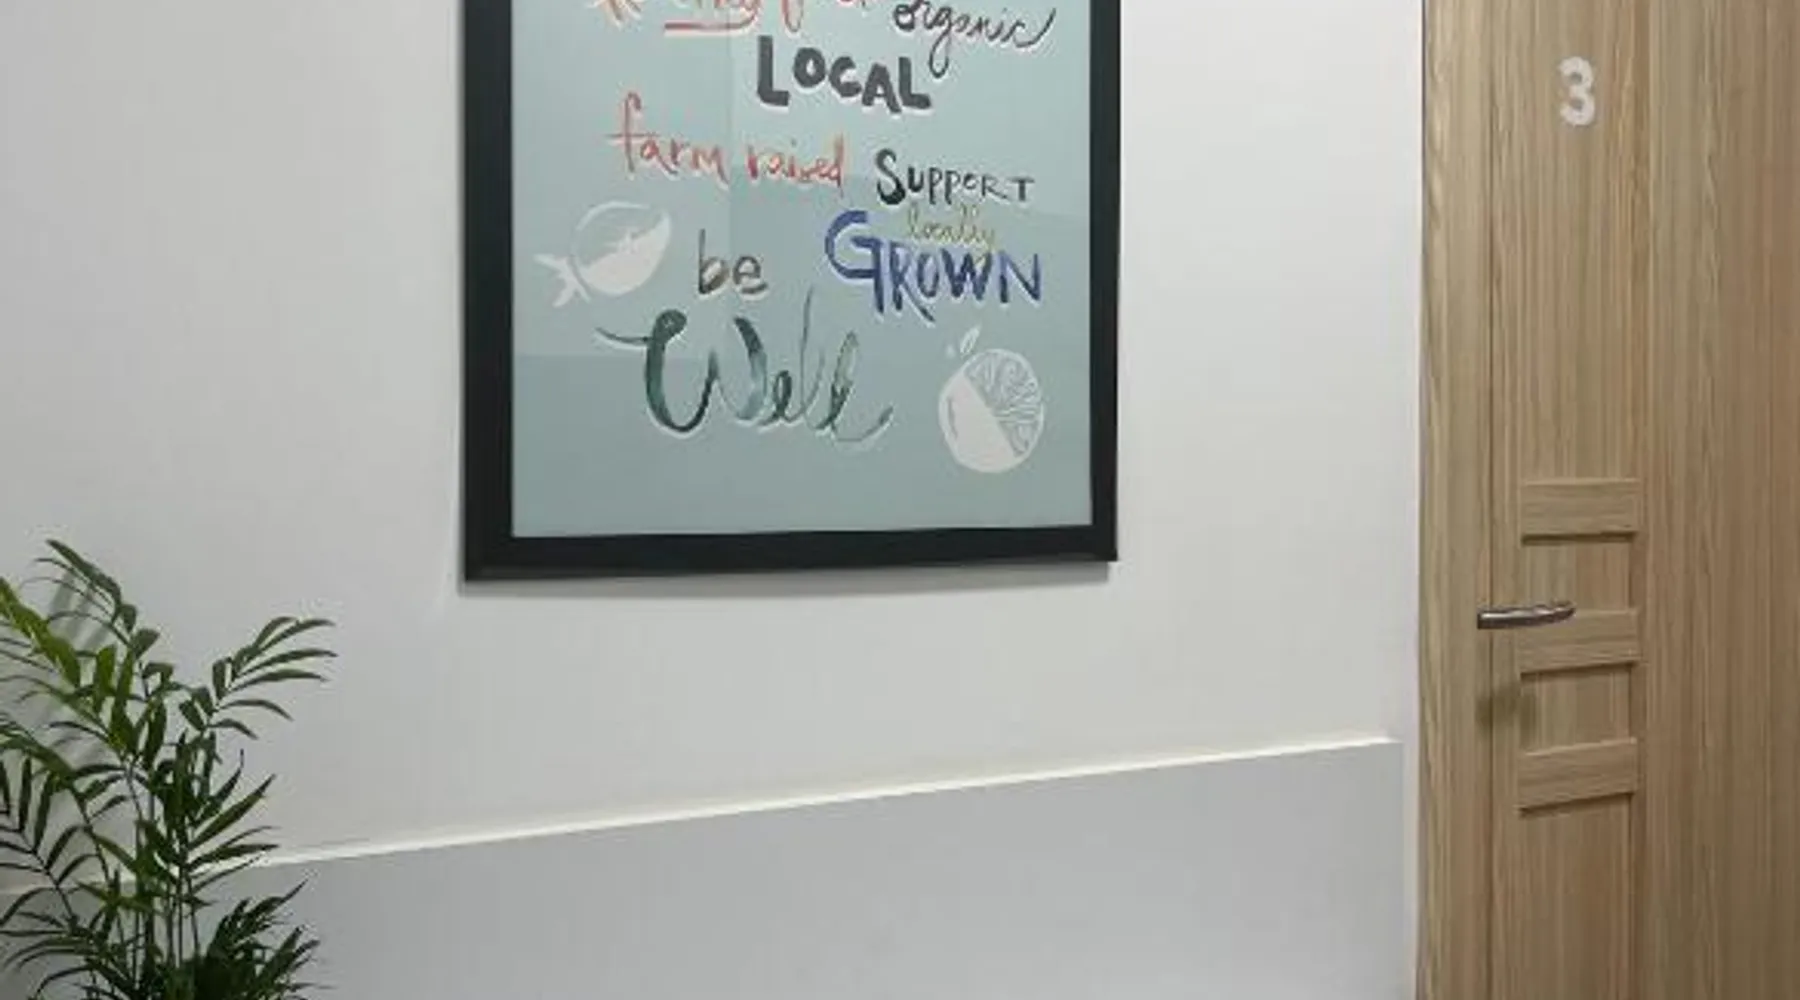 organic
LOCAL
farm raised
SUPPORT
locally
GROWN
be
Well
3